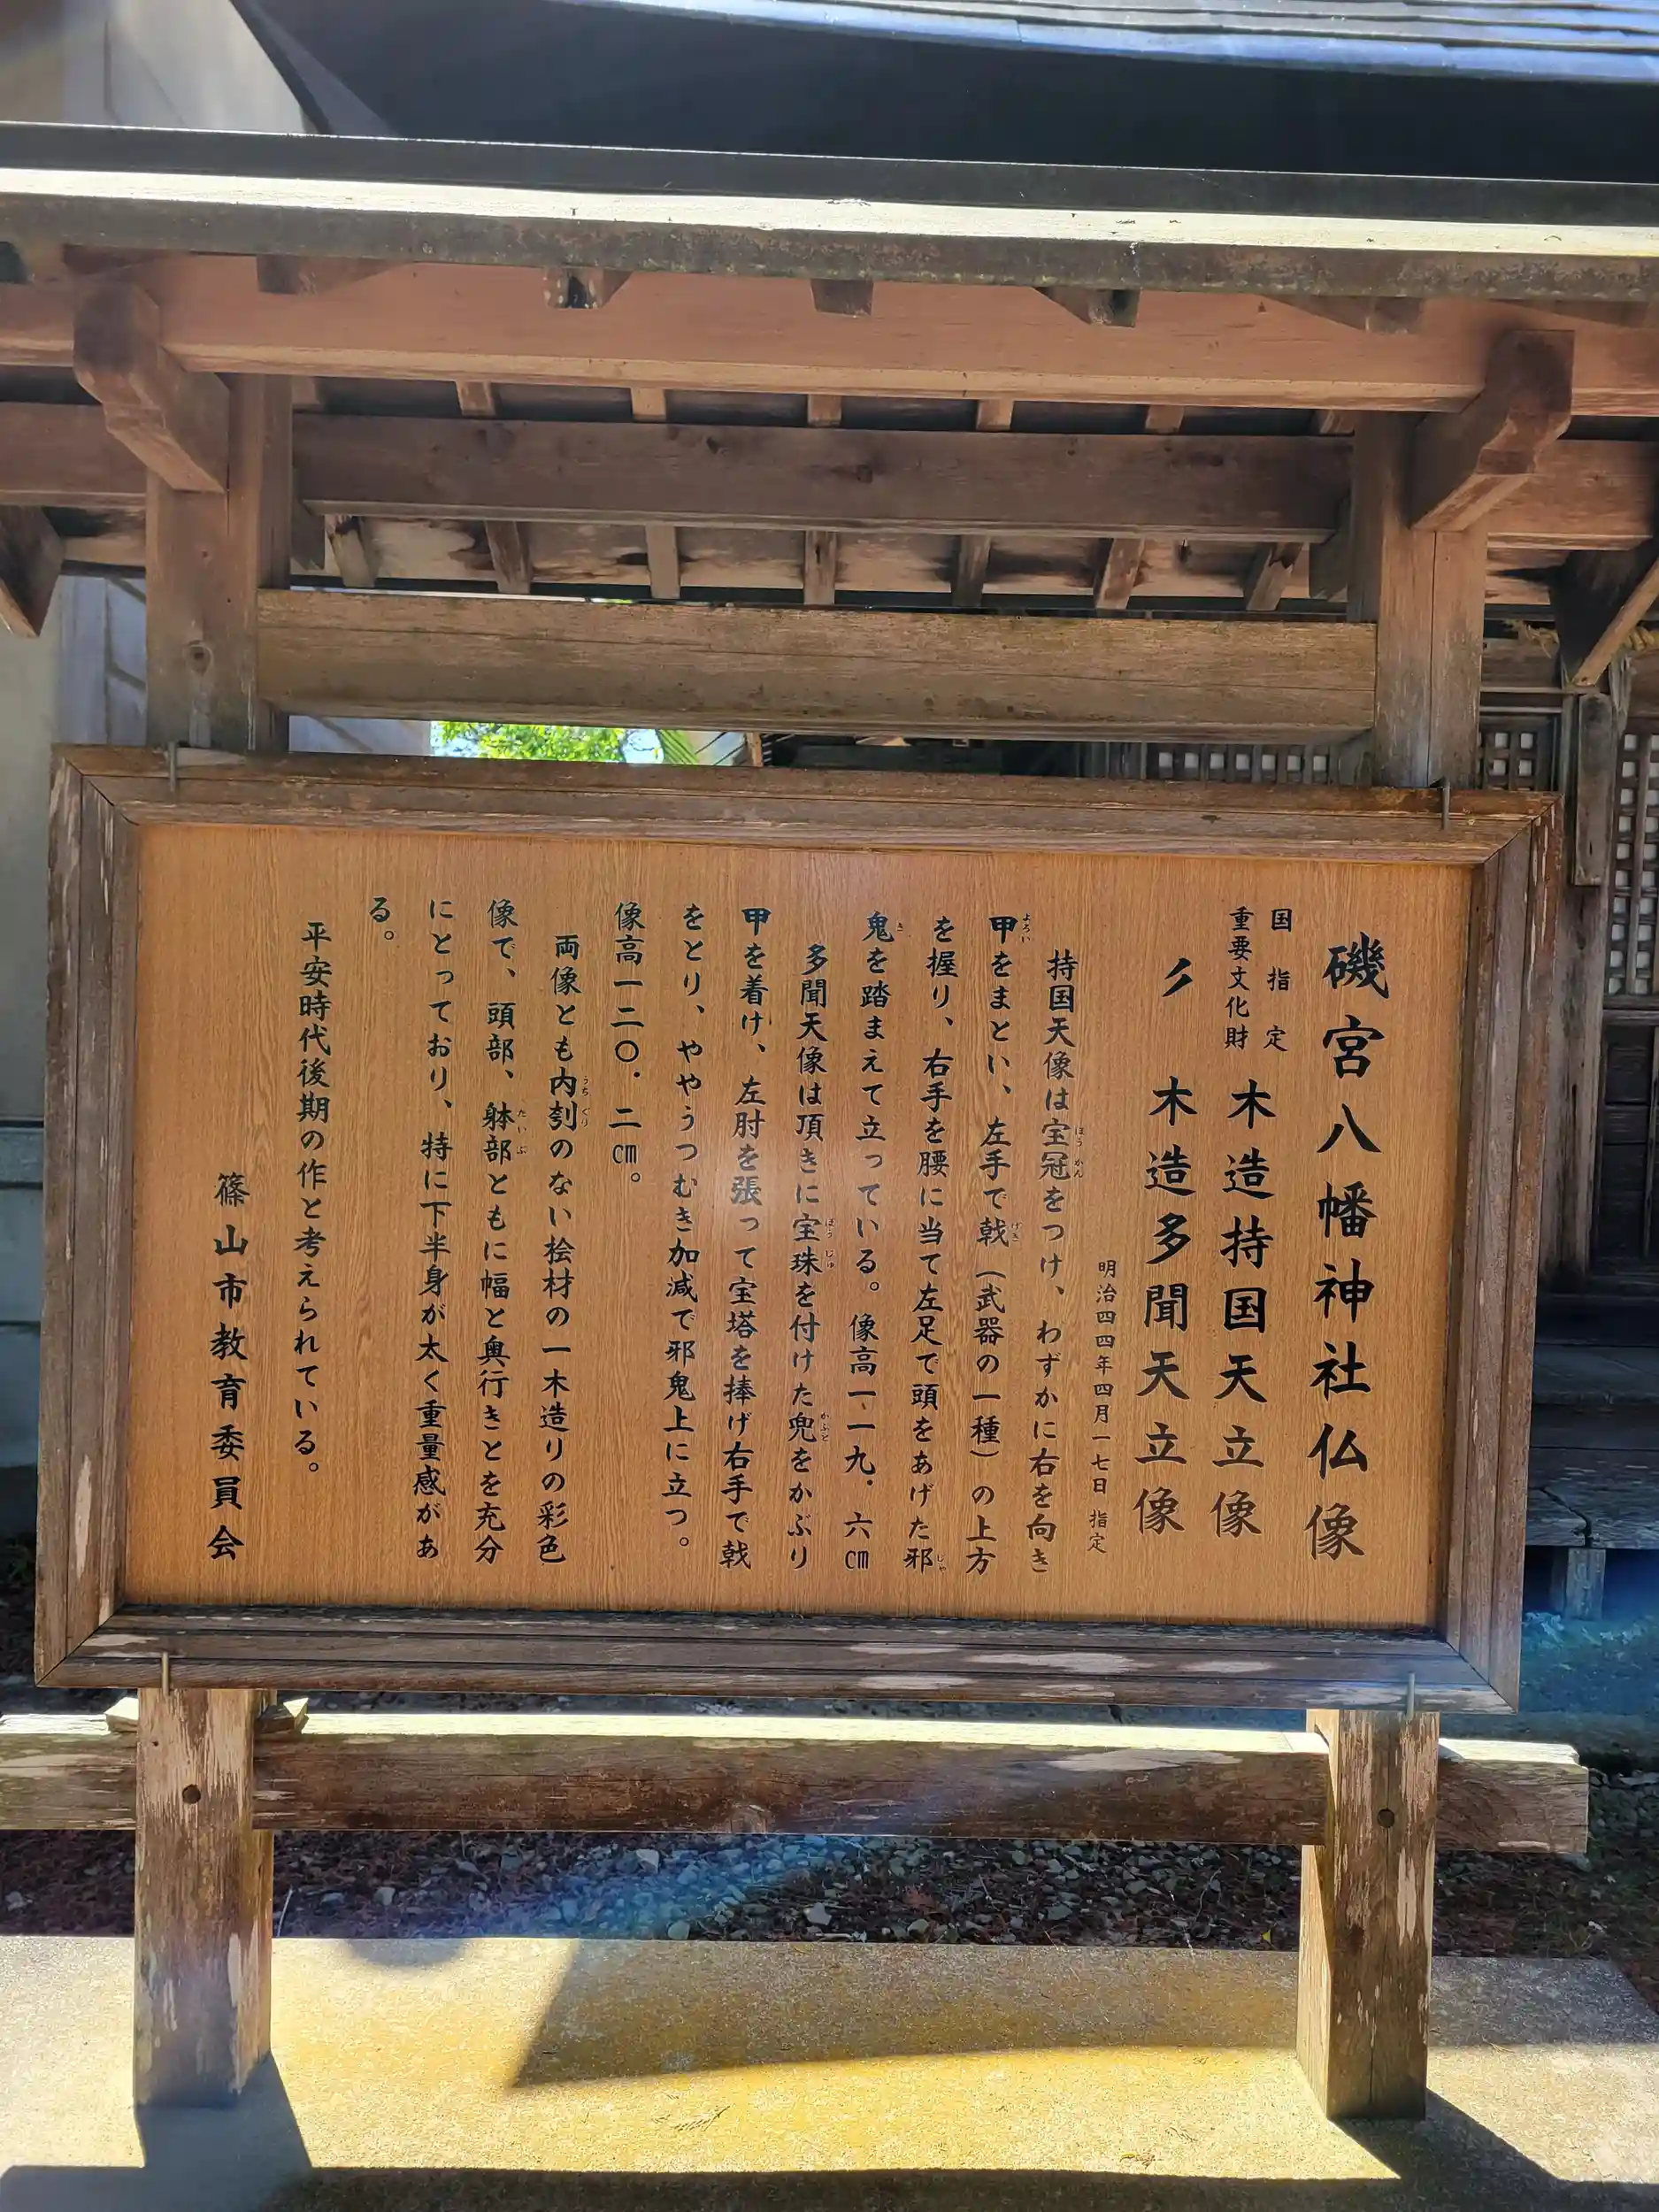 磯宮八幡神社仏像
国指定
重要文化財
木造持国天立像
〃 木造多聞天立像
明治四四年四月一七日 指定
持国天像は宝冠をつけ、わずかに右を向き
甲をまとい、左手で戟(武器の一種)の上方
を握り、右手を腰に当て左足で頭をあげた邪
鬼を踏まえて立っている。像高一一九．六㎝
多聞天像は頂きに宝珠を付けた兜をかぶり
甲を着け、左肘を張って宝塔を捧げ右手で戟
をとり、ややうつむき加減で邪鬼上に立つ。
像高一二〇．二㎝。
両像とも内刳のない桧材の一木造りの彩色
像で、頭部、躰部ともに幅と奥行きとを充分
にとっており、特に下半身が太く重量感があ
る。
平安時代後期の作と考えられている。
篠山市教育委員会